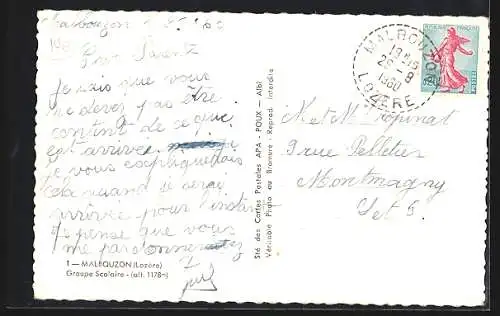 Gros Parents
Je sais que vous
ne devez pas être
content de ce que
est arrivée
je vous expliquerais
cela quand je serai
arrivée pour l'instant
je pense que vous
me pardonnerez
1 — MALBOUZON (Lozère)
Groupe Scolaire - (alt. 1178m)
Sté des Cartes Postales APA - POUX - Albi
Véritable Photo au Bromure - Reprod. interdite
MALBOUZON
26 - 8
1960
LOZÈRE
M et M
3 rue Pelletier
Montmagny
S et O